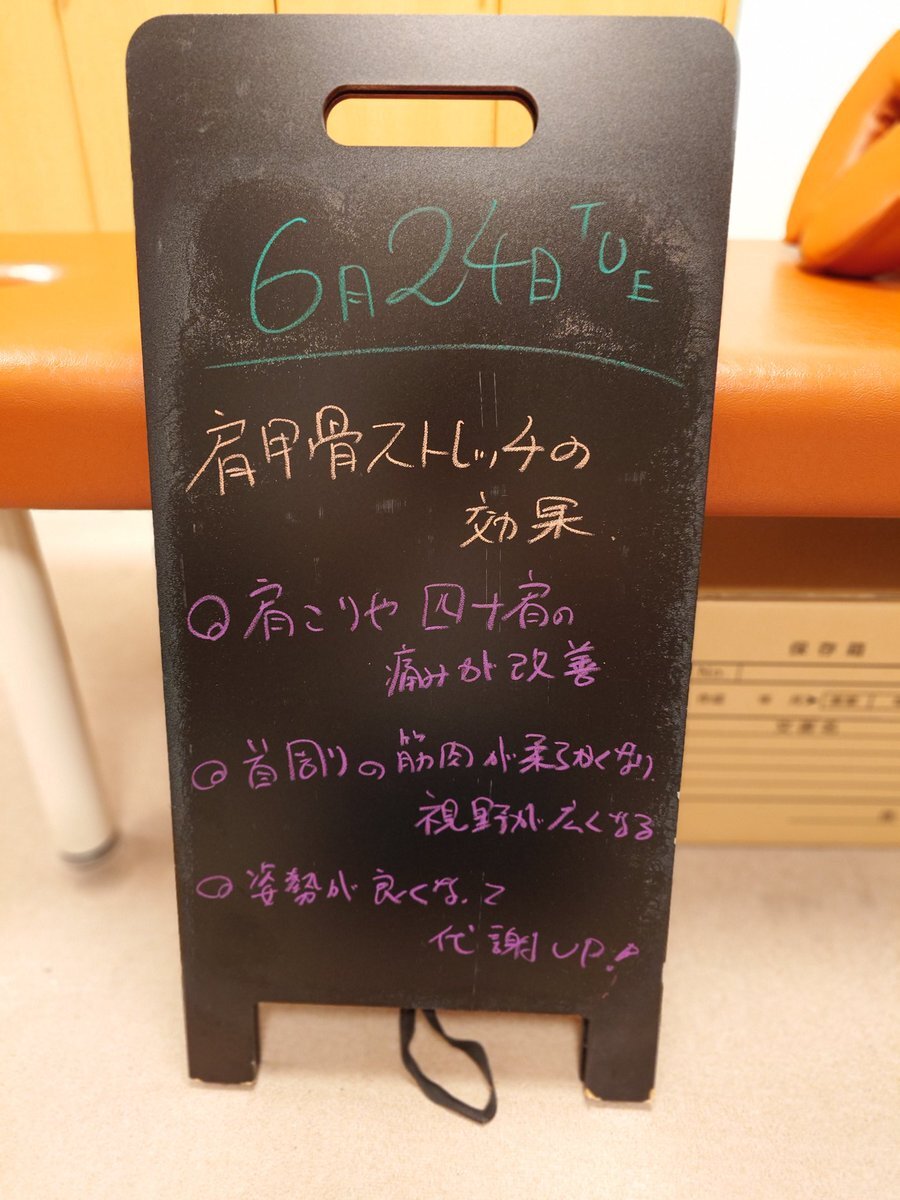 6月24日TUE
肩甲骨ストレッチの
効果
◎肩こりや四十肩の
痛みが改善
◎首周りの筋肉が柔らかくなり
視野が広くなる
◎姿勢が良くなって
代謝UP!
保存箱
No.